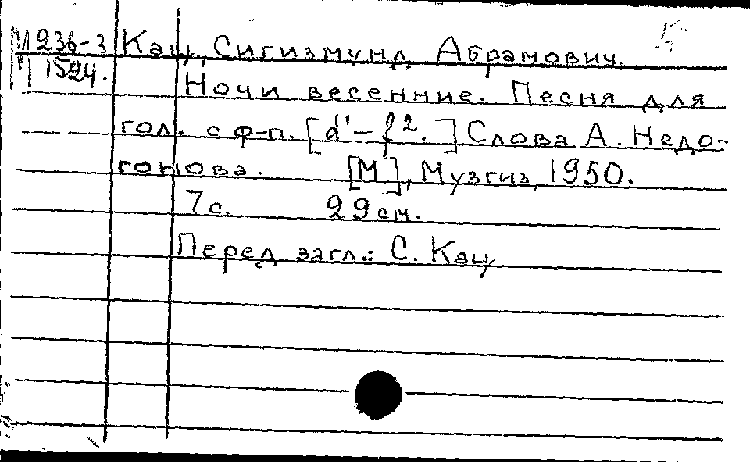 М 236-3 Кац, Сигизмунд Абрамович.
М 1524. Ночи весенние. Песня для
гол. с ф-п. [d'-f². ] Слова А. Недо-
гонова. [М], Музгиз, 1950.
7 с. 29 см.
Перед загл.: С. Кац